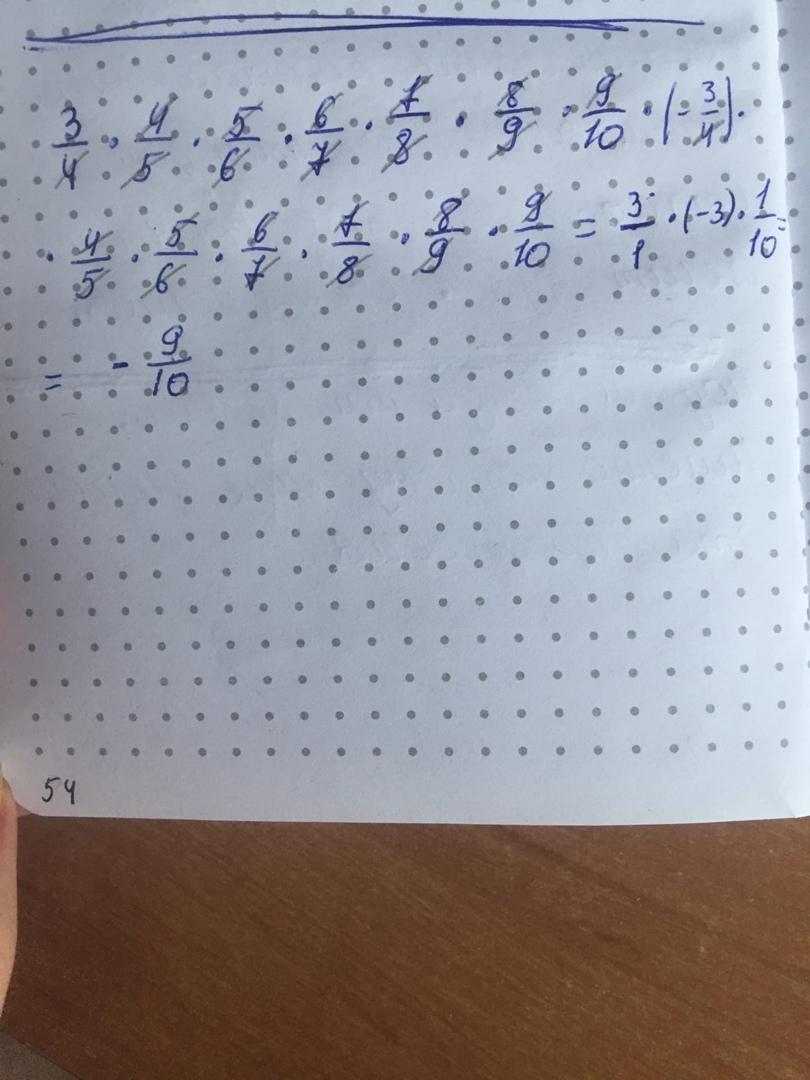 3/4 · 4/5 · 5/6 · 6/7 · 7/8 · 8/9 · 9/10 · (-3/4) ·
· 4/5 · 5/6 · 6/7 · 7/8 · 8/9 · 9/10 = 3/1 · (-3) · 1/10 =
= - 9/10
54